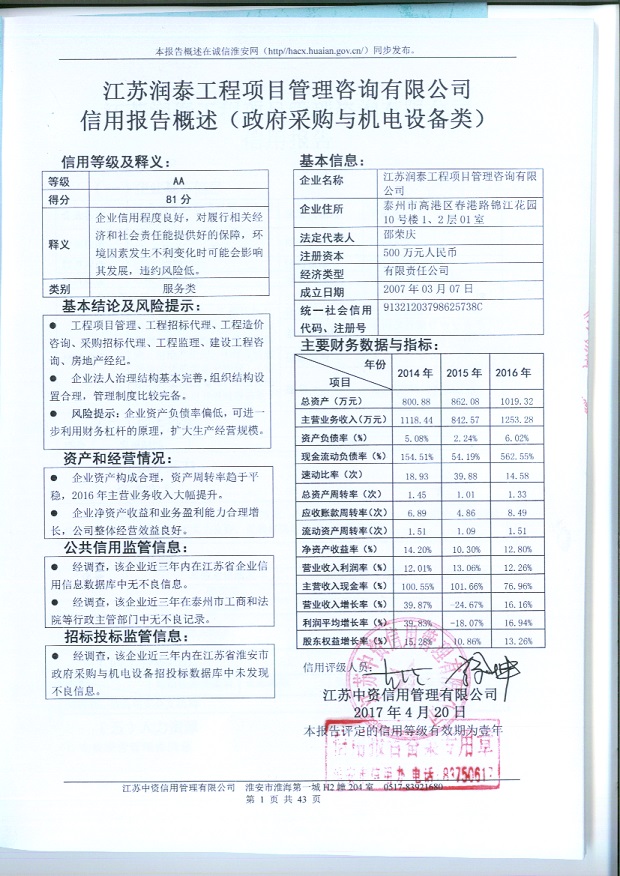 本报告概述在诚信淮安网（http//hacx.huaian.gov.cn/）同步发布。
江苏润泰工程项目管理咨询有限公司
信用报告概述（政府采购与机电设备类）
信用等级及释义：
等级 AA
得分 81 分
释义 企业信用程度良好，对履行相关经
济和社会责任能提供好的保障，环
境因素发生不利变化时可能会影响
其发展，违约风险低。
类别 服务类
基本结论及风险提示：
● 工程项目管理、工程招标代理、工程造价
咨询、采购招标代理、工程监理、建设工程咨
询、房地产经纪。
● 企业法人治理结构基本完善，组织结构设
置合理，管理制度比较完备。
● 风险提示：企业资产负债率偏低，可进一
步利用财务杠杆的原理，扩大生产经营规模。
资产和经营情况：
● 企业资产构成合理，资产周转率趋于平
稳，2016 年主营业务收入大幅提升。
● 企业净资产收益和业务盈利能力合理增
长，公司整体经营效益良好。
公共信用监管信息：
● 经调查，该企业近三年内在江苏省企业信
用信息数据库中无不良信息。
● 经调查，该企业近三年在泰州市工商和法
院等行政主管部门中无不良记录。
招标投标监管信息：
● 经调查，该企业近三年内在江苏省淮安市
政府采购与机电设备招投标数据库中未发现
不良信息。
基本信息：
企业名称 江苏润泰工程项目管理咨询有限
公司
企业住所 泰州市高港区春港路锦江花园
10 号楼 1、2 层 01 室
法定代表人 邵荣庆
注册资本 500 万元人民币
经济类型 有限责任公司
成立日期 2007 年 03 月 07 日
统一社会信用 91321203798625738C
代码、注册号
主要财务数据与指标：
年份
项目 2014 年 2015 年 2016 年
总资产（万元） 800.88 862.08 1019.32
主营业务收入(万元) 1118.44 842.57 1253.28
资产负债率（%） 5.08% 2.24% 6.02%
现金流动负债率（%） 154.51% 54.19% 562.55%
速动比率（次） 18.93 39.88 14.58
总资产周转率（次） 1.45 1.01 1.33
应收账款周转率（次） 6.89 4.86 8.49
流动资产周转率（次） 1.51 1.09 1.51
净资产收益率（%） 14.20% 10.30% 12.80%
营业收入利润率（%） 12.01% 13.06% 12.26%
主营收入现金率（%） 100.55% 101.66% 76.96%
营业收入增长率（%） 39.87% -24.67% 16.16%
利润平均增长率（%） 39.83% -18.07% 16.94%
股东权益增长率（%） 15.28% 10.86% 13.26%
信用评级人员：
江苏中资信用管理有限公司
2017 年 4 月 20 日
本报告评定的信用等级有效期为壹年
信用报告备案专用章
电话：83750617
江苏中资信用管理有限公司 淮安市淮海第一城 H2 幢 204 室 0517-83921680
第 1 页 共 43 页